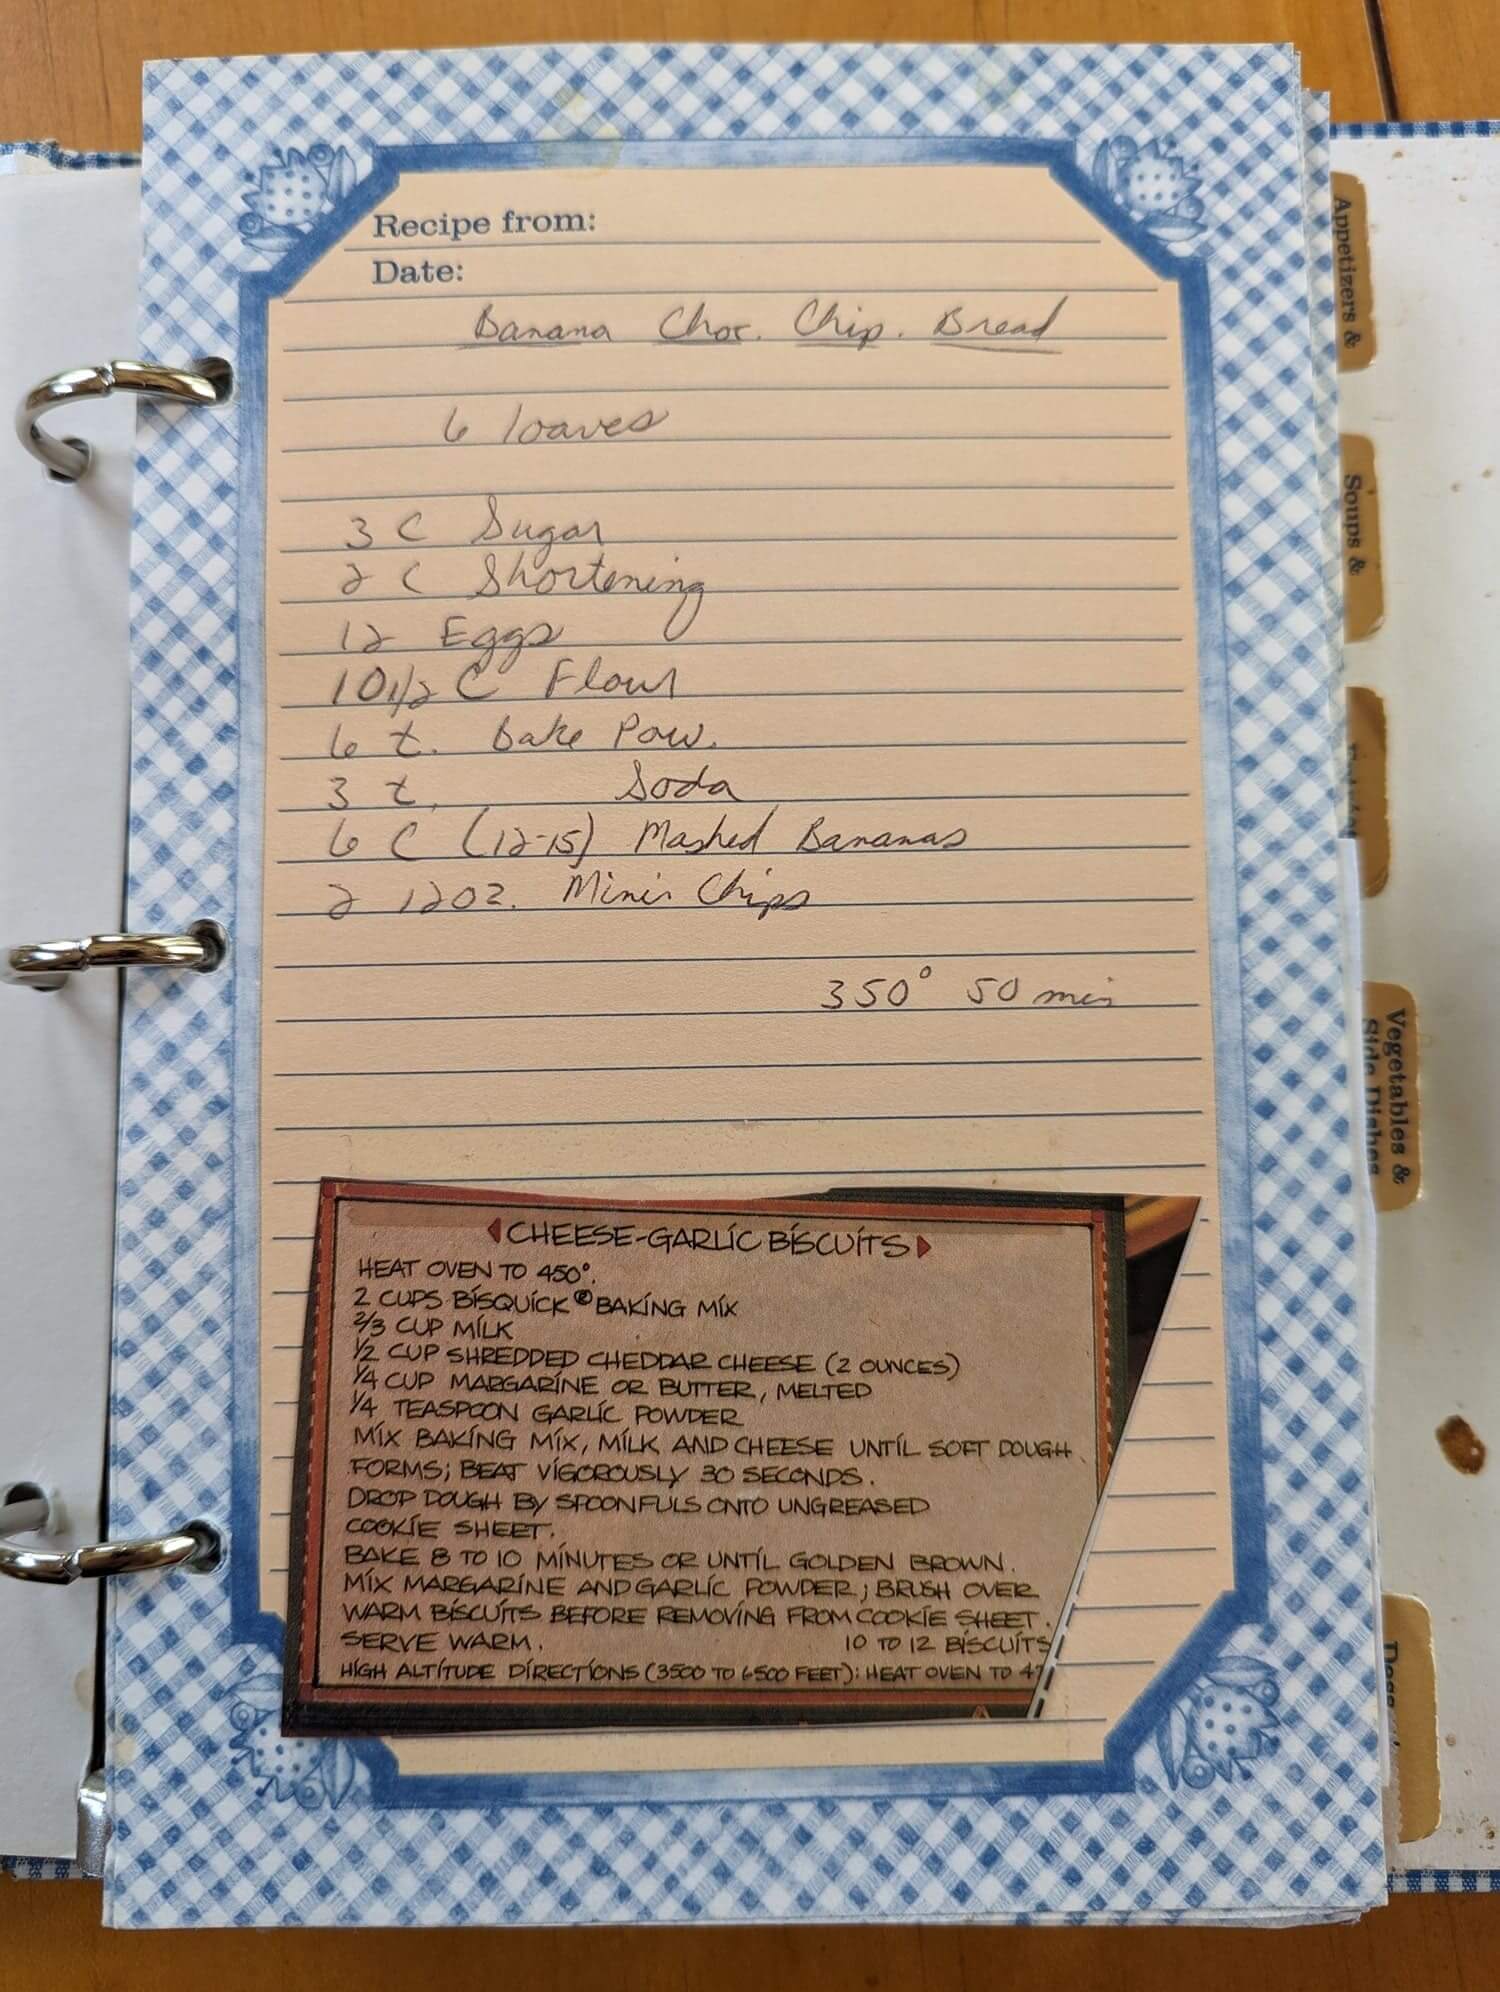 Recipe from:
Date:
Banana Choc. Chip. Bread
6 loaves
3 C Sugar
2 C Shortening
12 Eggs
10 1/2 C Flour
6 t. Bake Pow.
3 t. Soda
6 C (12-15) Mashed Bananas
2 12oz. Mini Chips
350° 50 min
CHEESE-GARLIC BISCUITS
HEAT OVEN TO 450°.
2 CUPS BISQUICK® BAKING MIX
2/3 CUP MILK
1/2 CUP SHREDDED CHEDDAR CHEESE (2 OUNCES)
1/4 CUP MARGARINE OR BUTTER, MELTED
1/4 TEASPOON GARLIC POWDER
MIX BAKING MIX, MILK AND CHEESE UNTIL SOFT DOUGH
FORMS; BEAT VIGOROUSLY 30 SECONDS.
DROP DOUGH BY SPOONFULS ONTO UNGREASED
COOKIE SHEET.
BAKE 8 TO 10 MINUTES OR UNTIL GOLDEN BROWN.
MIX MARGARINE AND GARLIC POWDER; BRUSH OVER
WARM BISCUITS BEFORE REMOVING FROM COOKIE SHEET.
SERVE WARM. 10 TO 12 BISCUITS
HIGH ALTITUDE DIRECTIONS (3500 TO 6500 FEET): HEAT OVEN TO 47
Appetizers &
Soups &
Vegetables &
Side Dishes